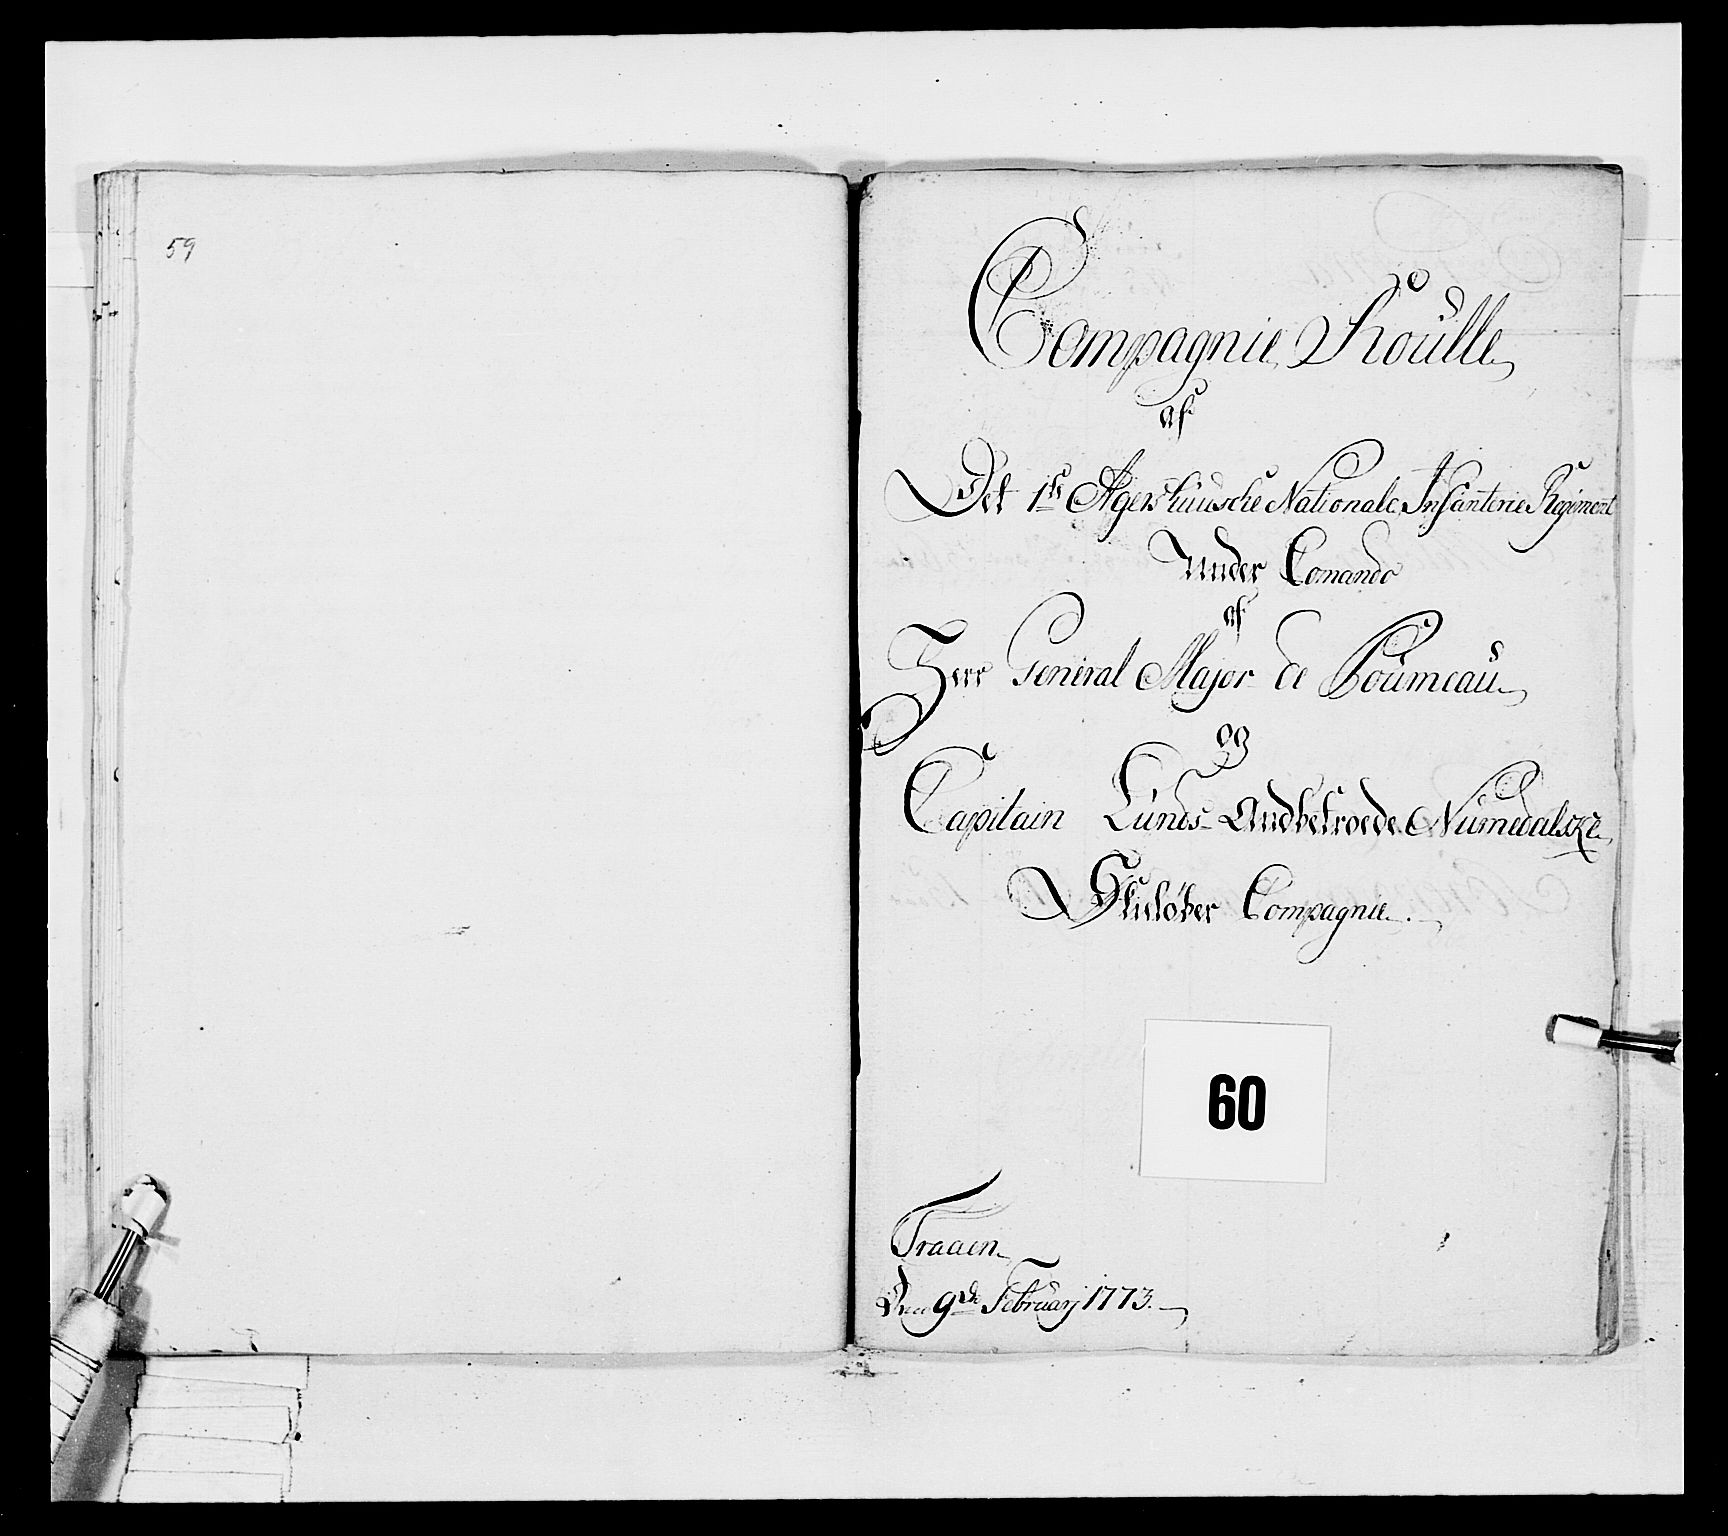 59
Compagnie Roulle
af
Det 1ste Agershuusche Nationale Infanterie Regiment
Under Comando
af
Herr General Major de Poumeau
og
Capitain Lunds Andbetroede Numedalske
Skieløber Compagnie.
60
Traaen
Den 9de February 1773.